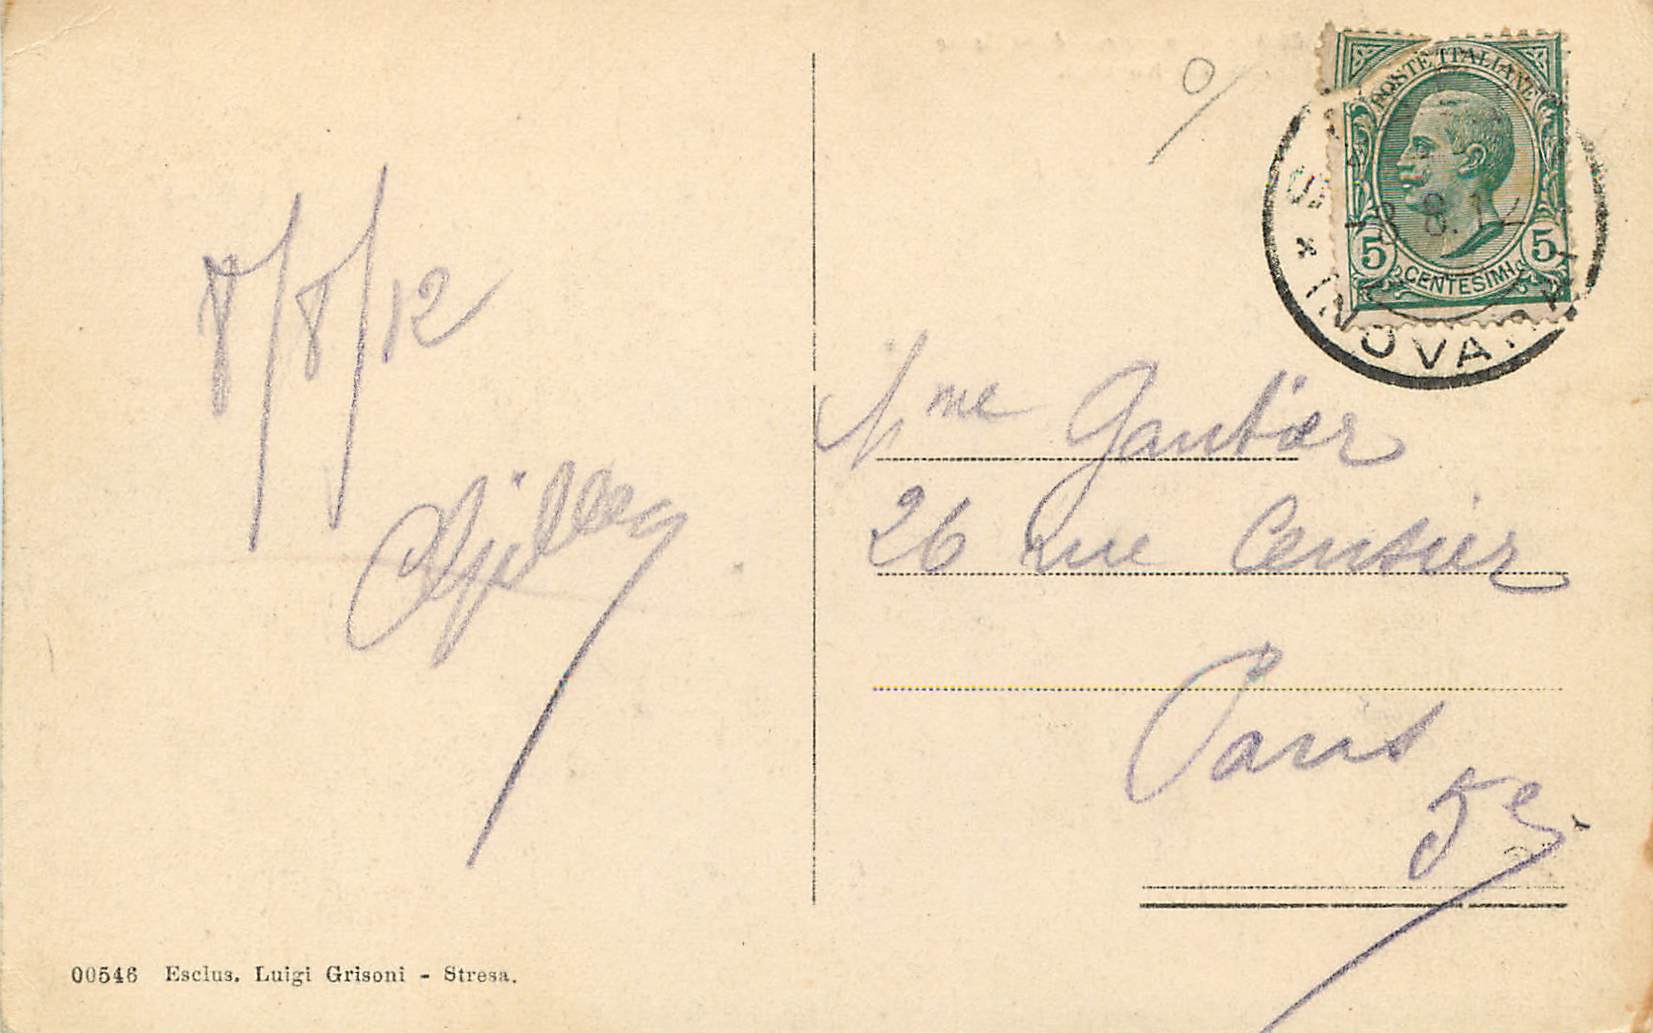 8/8/12
Mme Gautier
26 rue Censier
Paris
5e
POSTE ITALIANE
5 CENTESIMI 5
8. 12
NOVA
00546 Esclus. Luigi Grisoni - Stresa.